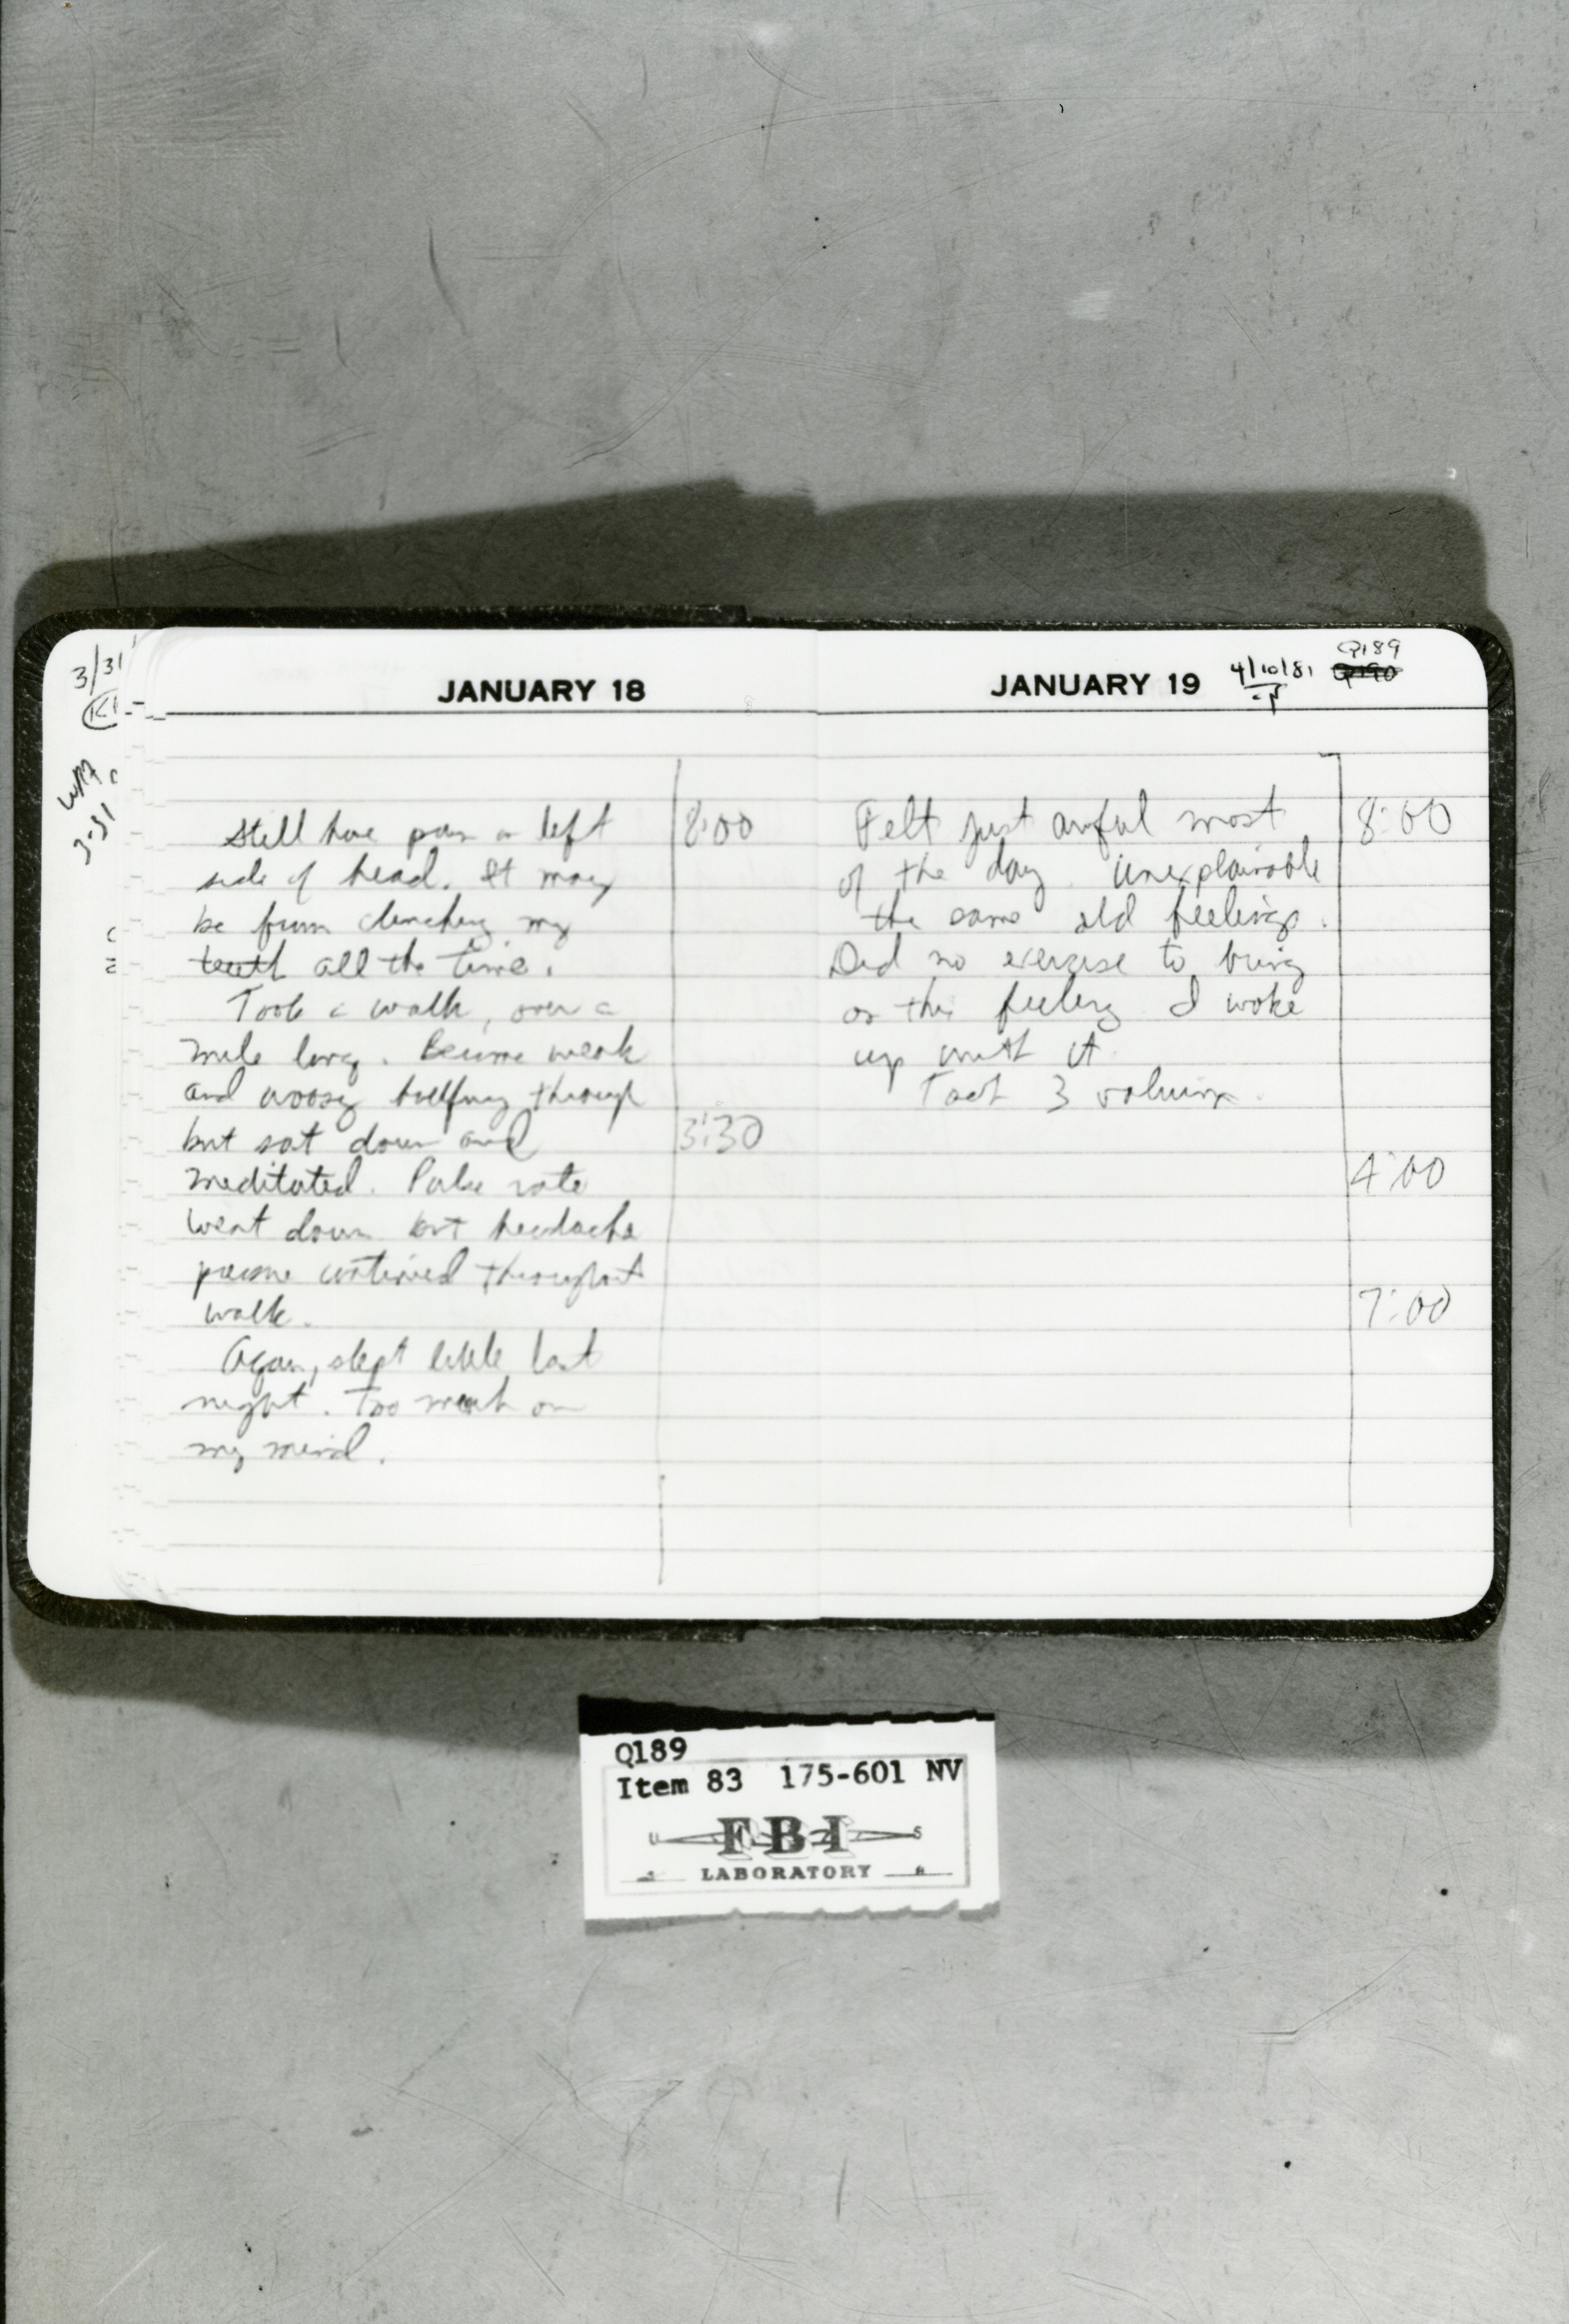 3/31
JANUARY 18
WMA
3-31
Still have pain on left
side of head. It may
be from clenching my
teeth all the time.
Took a walk, over a
mile long. Became weak
and woosy halfway through
but sat down and
meditated. Pulse rate
went down but headache
continued throughout
walk.
Again, slept little last
night. Too much on
my mind.
8:00
3:30
JANUARY 19
4/10/81
Q189
Q190
Felt just awful most
of the day. Unexplainable
the same old feelings.
Did no exercise to bring
on this feeling I woke
up with it
Took 3 valiums.
8:00
4:00
7:00
Q189
Item 83 175-601 NV
U S
FBI
LABORATORY